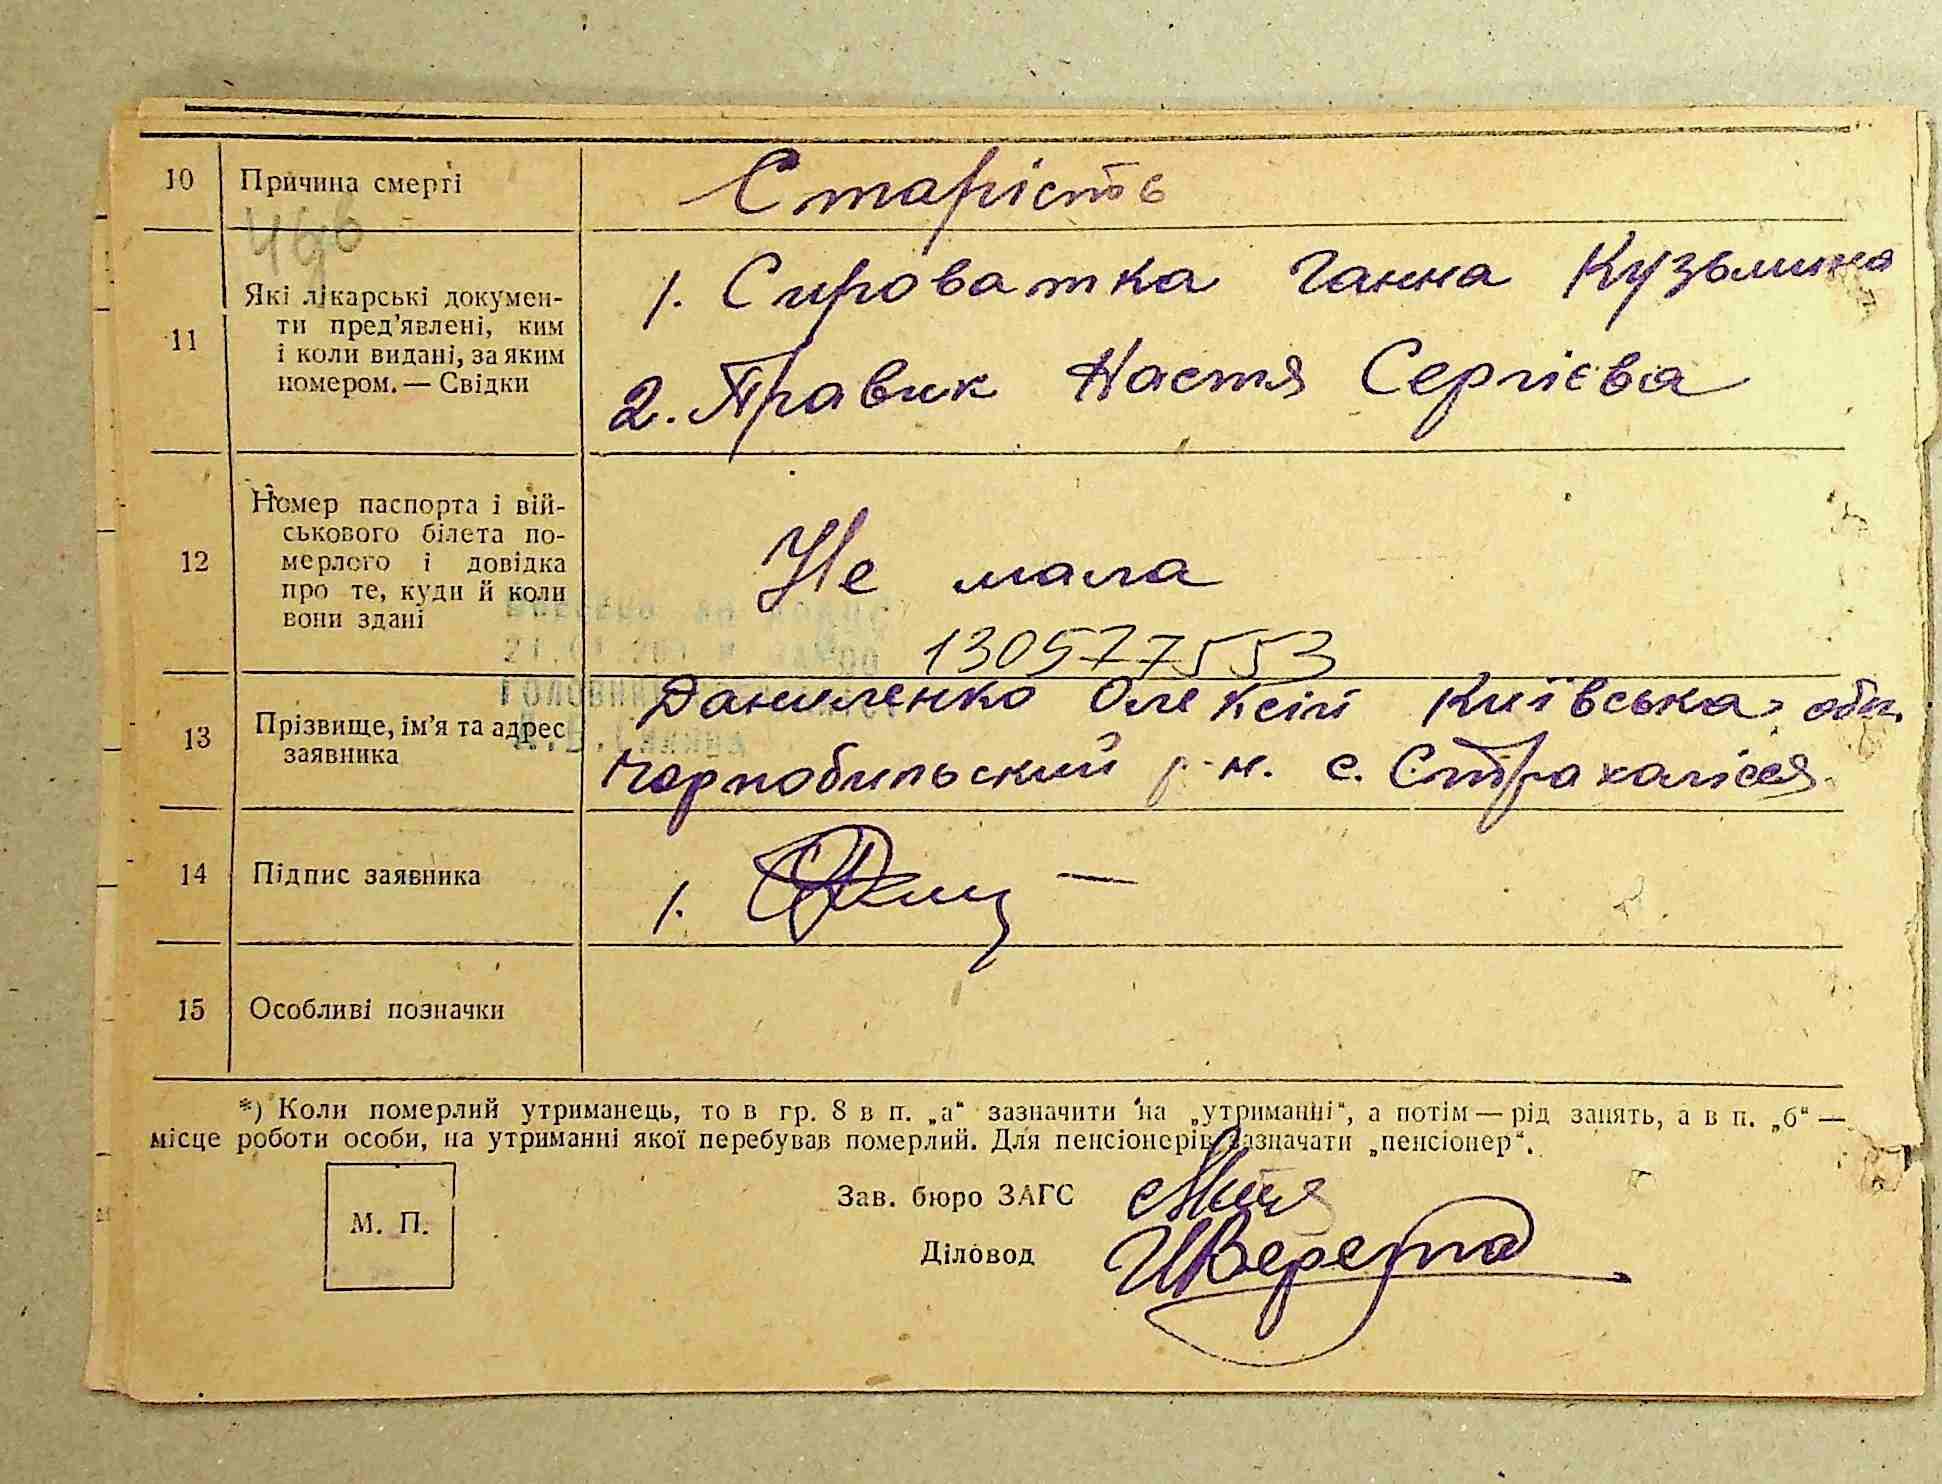 10 Причина смерті Старість
11 Які лікарські докумен-
ти пред'явлені, ким
і коли видані, за яким
номером. — Свідки
1. Сироватка Ганна Кузьмина
2. Правик Настя Сергієва
12 Номер паспорта і вій-
ськового білета по-
мерлого і довідка
про те, куди й коли
вони здані
Не мала
130577553
13 Прізвище, ім'я та адрес
заявника
Даниленко Олексій Київська обл.
Чорнобильський р-н. с. Страхолісся
14 Підпис заявника 1.
15 Особливі позначки
*) Коли померлий утриманець, то в гр. 8 в п. „а“ зазначити на „утриманні“, а потім — рід занять, а в п. „б“ —
місце роботи особи, на утриманні якої перебував померлий. Для пенсіонерів зазначати „пенсіонер“.
М. П.
Зав. бюро ЗАГС
Діловод